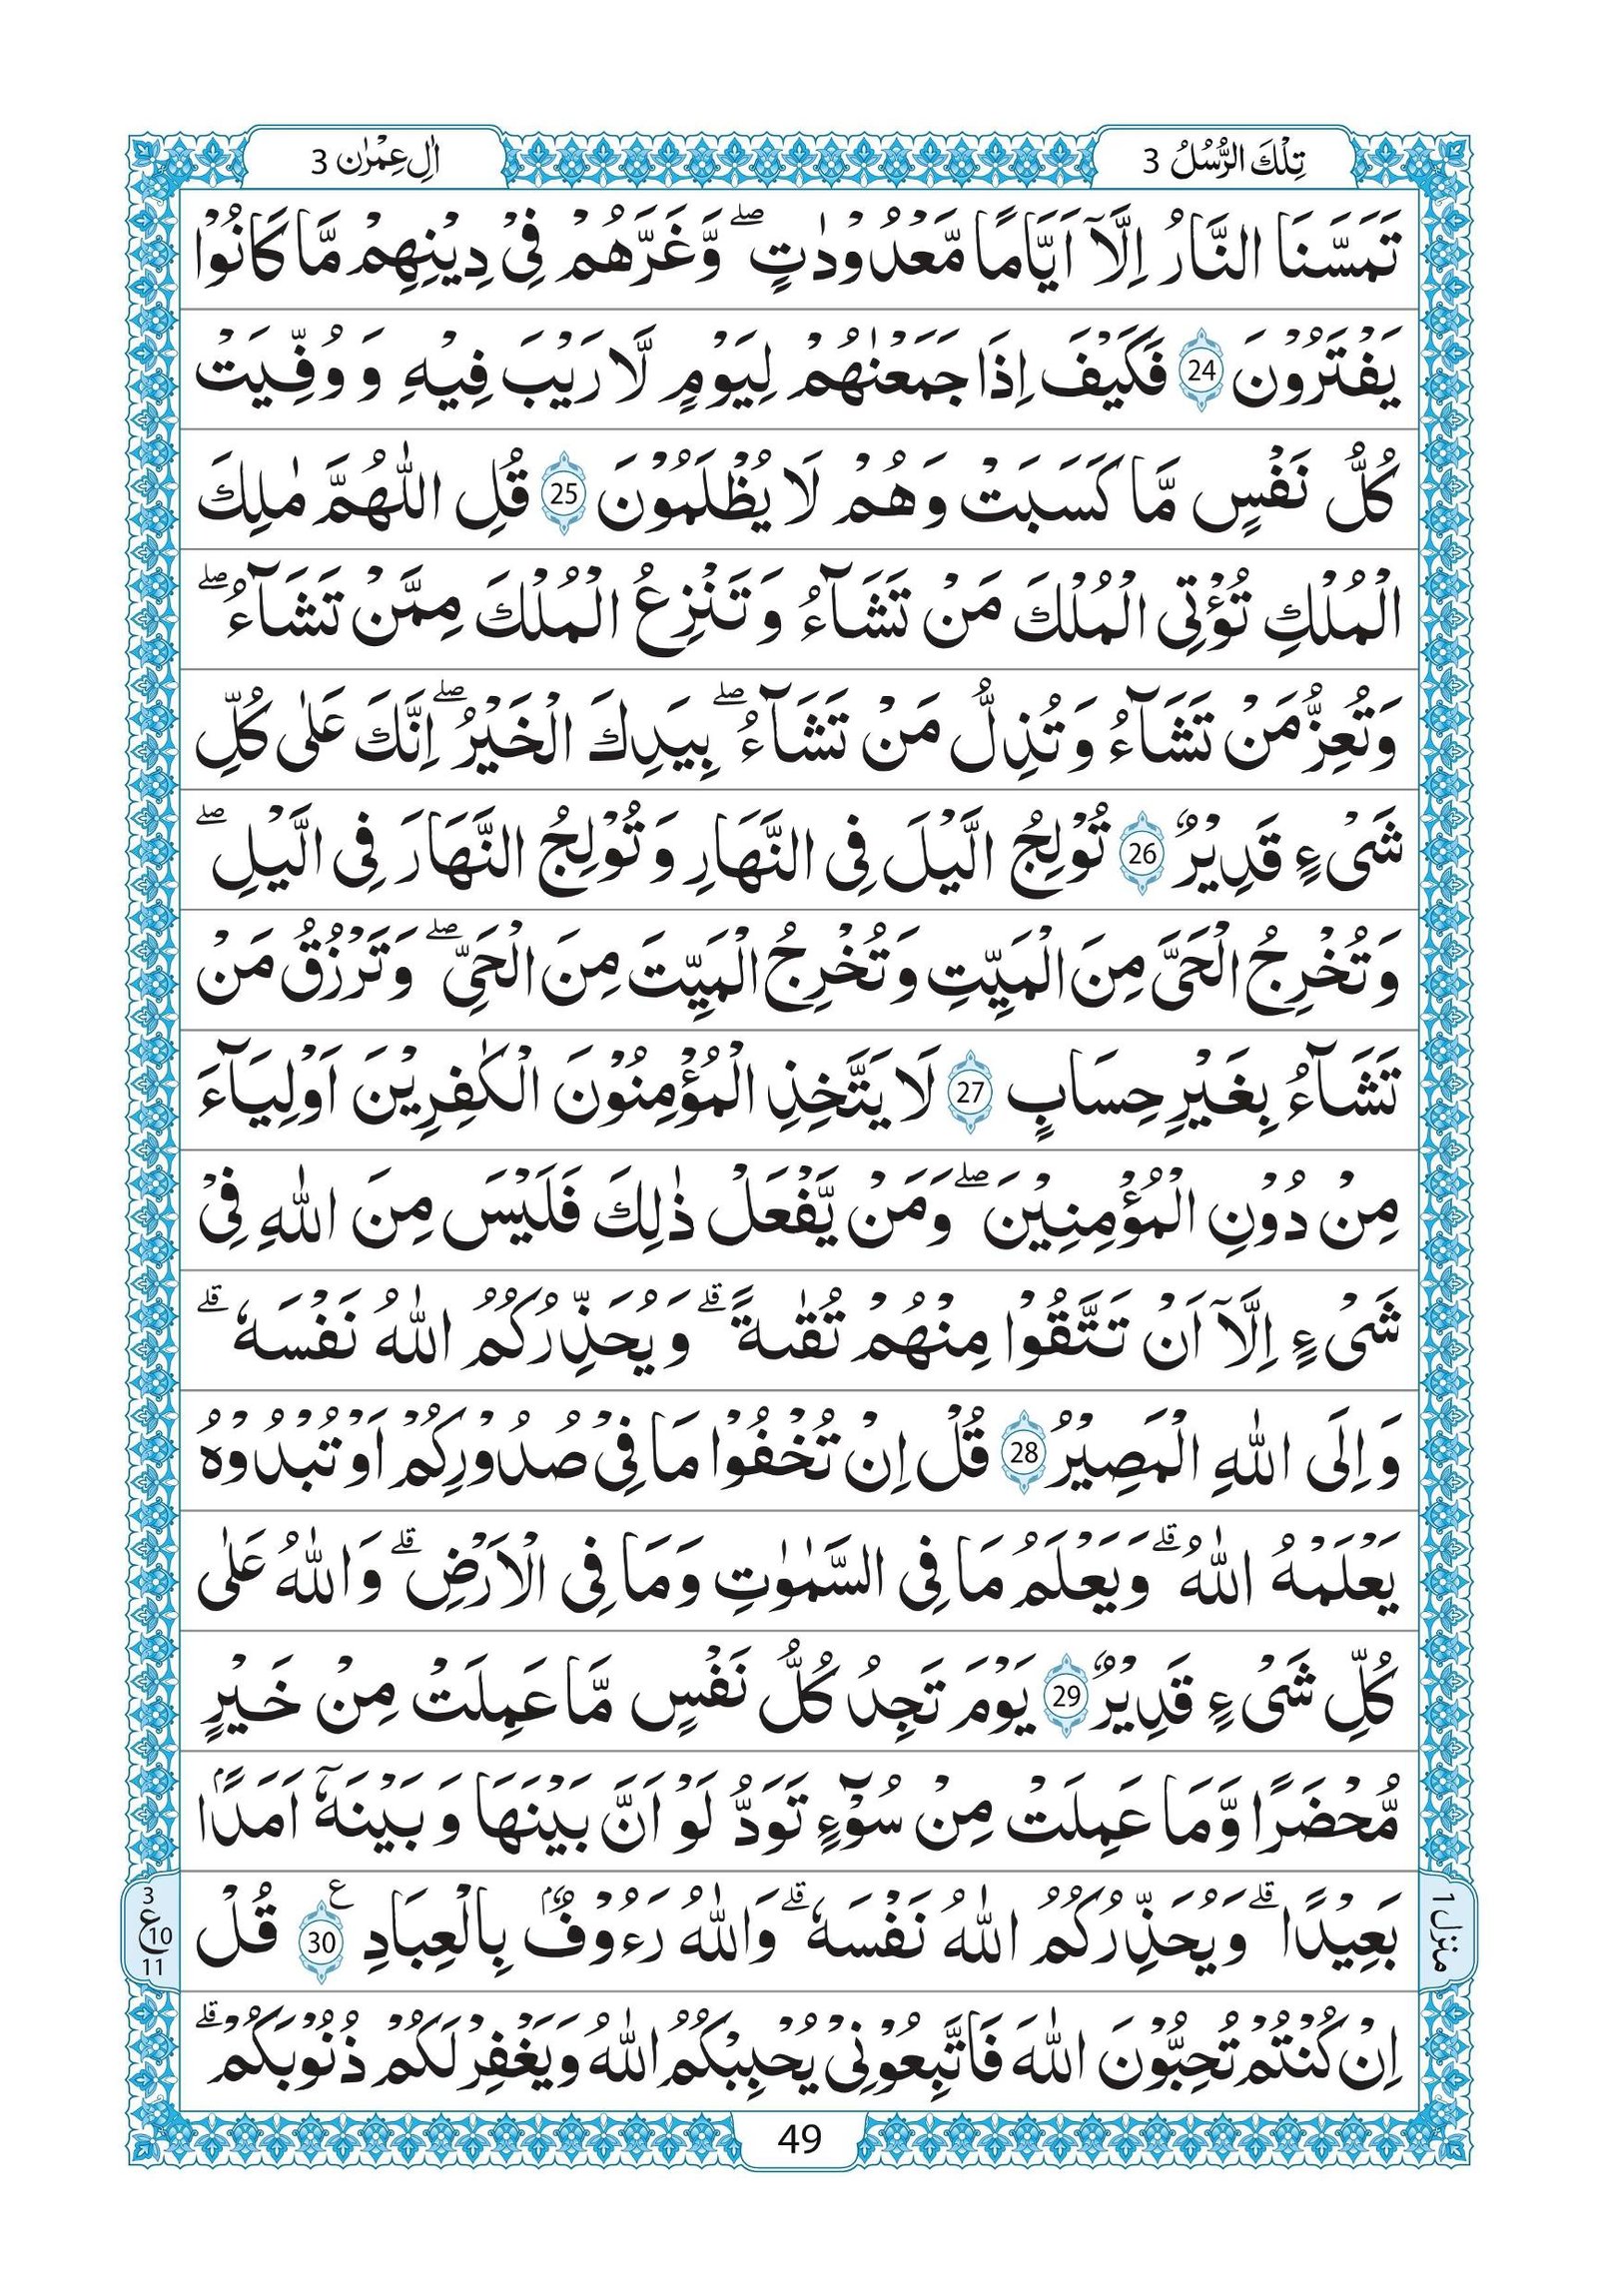 تِلْكَ الرُّسُلُ 3
اٰلِ عِمْرٰن 3
تَمَسَّنَا النَّارُ اِلَّاۤ اَيَّامًا مَّعْدُوْدٰتٍ ۖ وَّغَرَّهُمْ فِىْ دِيْنِهِمْ مَّا كَانُوْا
يَفْتَرُوْنَ 24 فَكَيْفَ اِذَا جَمَعْنٰهُمْ لِيَوْمٍ لَّا رَيْبَ فِيْهِ وَ وُفِّيَتْ
كُلُّ نَفْسٍ مَّا كَسَبَتْ وَهُمْ لَا يُظْلَمُوْنَ 25 قُلِ اللّٰهُمَّ مٰلِكَ
الْمُلْكِ تُؤْتِى الْمُلْكَ مَنْ تَشَآءُ وَتَنْزِعُ الْمُلْكَ مِمَّنْ تَشَآءُ ۖ
وَتُعِزُّ مَنْ تَشَآءُ وَتُذِلُّ مَنْ تَشَآءُ ۖ بِيَدِكَ الْخَيْرُ ۖ اِنَّكَ عَلٰى كُلِّ
شَىْءٍ قَدِيْرٌ 26 تُوْلِجُ الَّيْلَ فِى النَّهَارِ وَتُوْلِجُ النَّهَارَ فِى الَّيْلِ ۖ
وَتُخْرِجُ الْحَىَّ مِنَ الْمَيِّتِ وَتُخْرِجُ الْمَيِّتَ مِنَ الْحَىِّ ۖ وَتَرْزُقُ مَنْ
تَشَآءُ بِغَيْرِ حِسَابٍ 27 لَا يَتَّخِذِ الْمُؤْمِنُوْنَ الْكٰفِرِيْنَ اَوْلِيَآءَ
مِنْ دُوْنِ الْمُؤْمِنِيْنَ ۖ وَمَنْ يَّفْعَلْ ذٰلِكَ فَلَيْسَ مِنَ اللّٰهِ فِىْ
شَىْءٍ اِلَّاۤ اَنْ تَتَّقُوْا مِنْهُمْ تُقٰىةً ۗ وَيُحَذِّرُكُمُ اللّٰهُ نَفْسَهٗ ۗ
وَاِلَى اللّٰهِ الْمَصِيْرُ 28 قُلْ اِنْ تُخْفُوْا مَا فِىْ صُدُوْرِكُمْ اَوْ تُبْدُوْهُ
يَعْلَمْهُ اللّٰهُ ۗ وَيَعْلَمُ مَا فِى السَّمٰوٰتِ وَمَا فِى الْاَرْضِ ۗ وَاللّٰهُ عَلٰى
كُلِّ شَىْءٍ قَدِيْرٌ 29 يَوْمَ تَجِدُ كُلُّ نَفْسٍ مَّا عَمِلَتْ مِنْ خَيْرٍ
مُّحْضَرًا وَّمَا عَمِلَتْ مِنْ سُوْٓءٍ تَوَدُّ لَوْ اَنَّ بَيْنَهَا وَبَيْنَهٗۤ اَمَدًۢا
بَعِيْدًا ۗ وَيُحَذِّرُكُمُ اللّٰهُ نَفْسَهٗ ۗ وَاللّٰهُ رَءُوْفٌۢ بِالْعِبَادِ 30 ع قُلْ
3
ع 10
11
منزل 1
اِنْ كُنْتُمْ تُحِبُّوْنَ اللّٰهَ فَاتَّبِعُوْنِىْ يُحْبِبْكُمُ اللّٰهُ وَيَغْفِرْ لَكُمْ ذُنُوْبَكُمْ ۗ
49